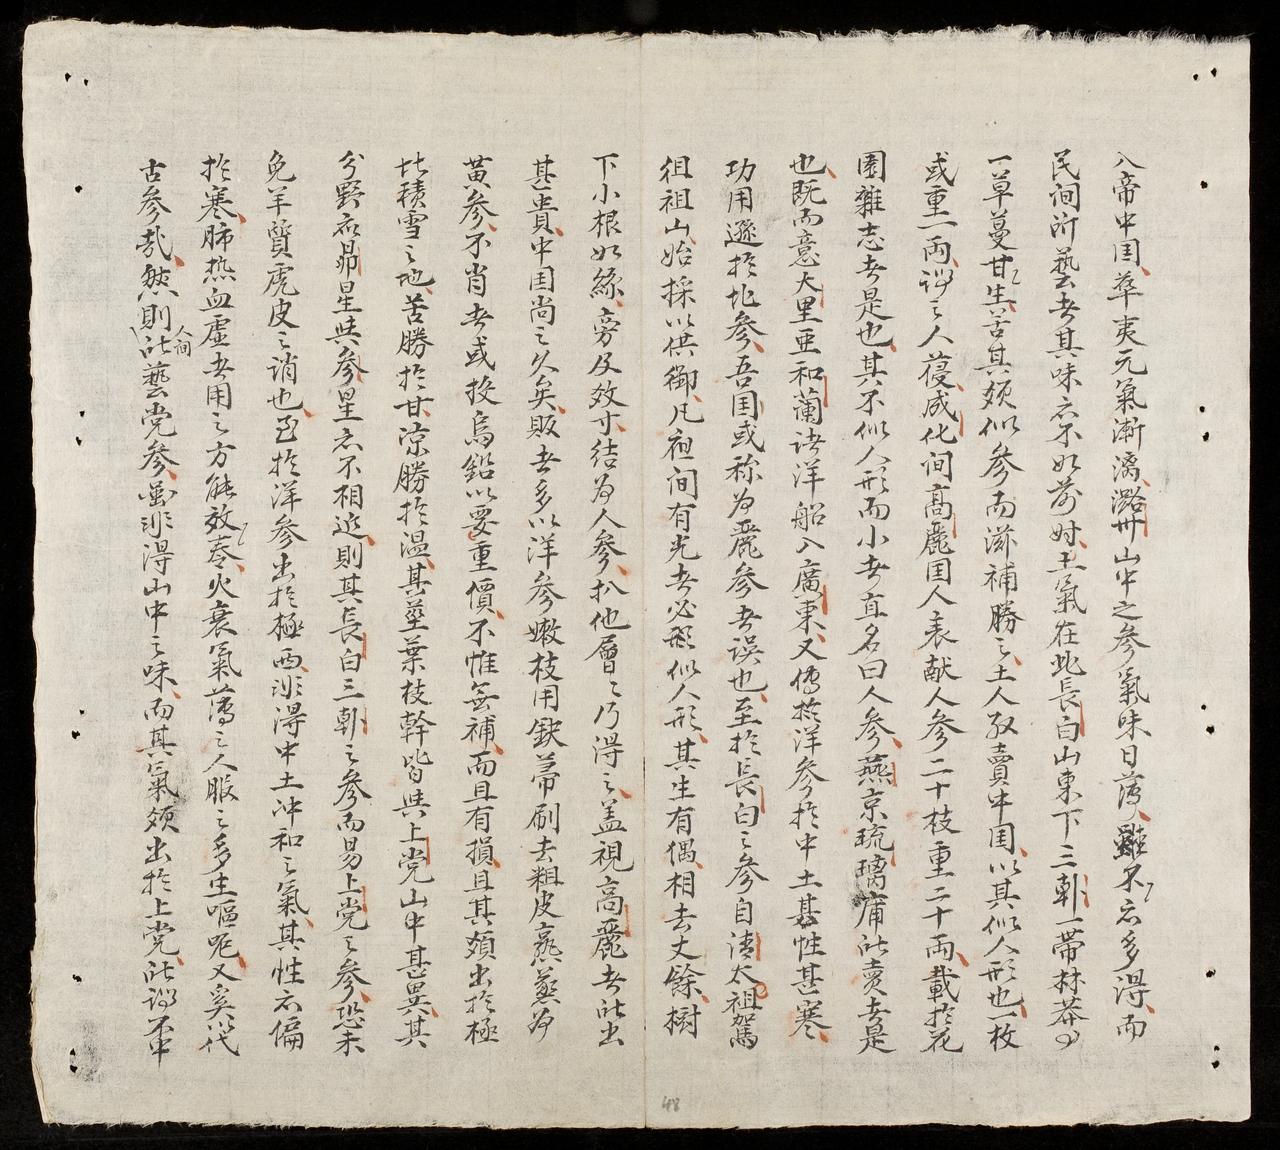 入帝中国華夷元氣漸漓潞州山中之參氣味日薄雖不忘多得而
民间所藝者其味亦不如前时土氣在北長白山東下三朝一帶林莽间
一草蔓甘生苦其類似参而滋補勝之土人取賣中国以其似人形也一枚
或重一两謂之人葠成化间高麗国人表献人参二十枝重二十两載於花
園雜志者是也其不似人形而小者直名曰人參燕京琉璃庸所賣者是
也既而意大里亜和蘭诸洋船入廣東又傳於洋参於中土其性甚寒
功用遜於北參吾国或称为麗參者误也至於長白之參自清太祖駕
徂祖山始採以供御凡祖间有光者必形似人形其生有偶相去丈餘樹
下小根如絲旁及数寸结为人參扒他層之乃得之盖視高麗者所出
甚貴中国尚之久矣販者多以洋參嫩枝用鉄幕刷去粗皮熏蒸为
黄參不肖者或投烏鉛以要重價不惟無補而且有損且其類出於極
北積雪之地苦勝於甘凉勝於温其莖葉枝幹皆與上党山中甚異其
分野在昴星與參星亦不相近則其長白三朝之參而易上党之參恐未
免羊質虎皮之誚也至於洋參出於極西非得中土冲和之氣其性亦偏
於寒肺热血虚者用之方能效奏火衰氣薄之人服之多生嘔呃又奚代
古參哉然則此人间藝党參虽非得山中之味而其氣類出於上党所謂不中
48